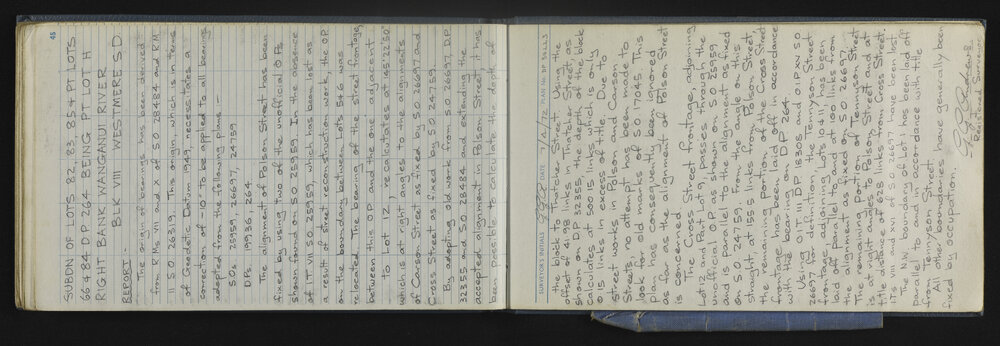 45
SUBDN OF LOTS 82, 83, 85 & PT LOTS
66 & 84 DP 264 BEING PT LOT H
RIGHT BANK WANGANUI RIVER
BLK VIII WESTMERE S.D.
REPORT
The origin of bearings has been derived
from RMs VII and X of S.O. 28484 and RM
II S.O. 26319. This origin which is in terms
of Geodetic Datum 1949, necessitates a
correction of -10" to be applied to all bearings
adopted from the following plans:-
SOs 25959, 26697, 24759
DPs 19936, 264
The alignment of Polson Street has been
fixed by using two of the unofficial OPs
shown found on SO 25959. In the absence
of IT VII S.O. 25959 which has been lost as
a result of street reconstruction work, the O.P.
on the boundary between Lots 5 & 6 was
relocated. The bearing of the street frontage,
between this OP and the one adjacent
to Lot 12, recalculates at 165° 22' 50"
which is at right angles to the alignments
of Carson Street as fixed by SO 26697 and
Cross Street as fixed by S.O. 24759
By adopting old work from S.O. 26697, D.P.
32355 and S.O. 28484 and extending the
accepted alignment in Polson Street it has
been possible to calculate the depth of
SURVEYOR'S INITIALS DATE 7/4/72 PLAN No DP 35115
the block to Thatcher Street. Using the
offset of 41.98 links in Thatcher Street, as
shown on DP 32355 the depth of the block
calculates at 500.15 links which is only
0.15 links in excess of title. Due to
street works in Polson and Carson
Streets, no attempt has been made to
look for old marks of SO 17045. This
plan has consequently been ignored
as far as the alignment of Polson Street
is concerned.
The Cross Street frontage, adjoining
Lot 12 and part Lot 9 passes through the
unofficial OP as shown on S.O. 25959
and is parallel to the alignment as fixed
on S.O. 24759. From the angle on this
straight at 155.5 links from Polson Street
the remaining portion of the Cross Street
frontage has been laid off in accordance
with the bearing on D.P. 264.
Using
26697 to definition the Tennyson Street
frontage adjoining Lots 10 & 11 has been
laid off parallel to, and at 100 links from
the alignment as fixed by SO 26697
The remaining portion of Tennyson Street
is at right angles to Polson Street and at
title distance of 628 links from Cross Street
ITs VIII and XVI of SO 26697 have been lost
The N.W. boundary of Lot 1 has been laid off
parallel to and in accordance with title
from Tennyson Street.
All other boundaries have generally been
fixed by occupation.
Registered Surveyor